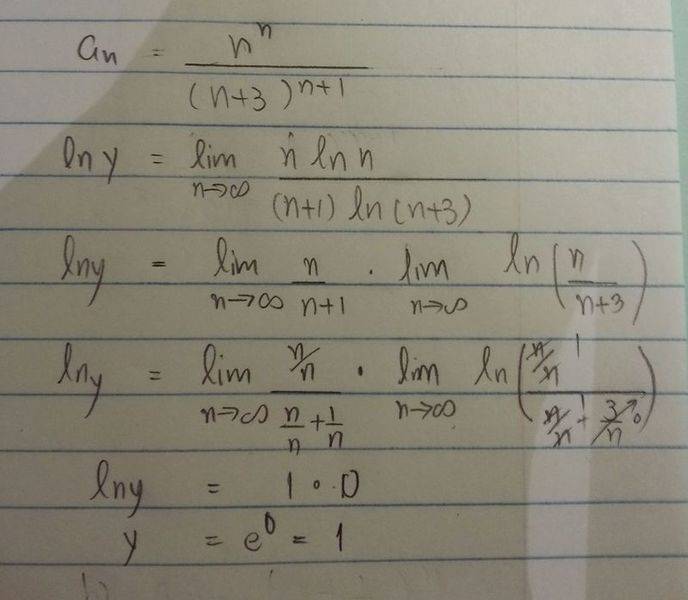 aₙ = nⁿ / (n+3)ⁿ⁺¹
ln y = lim n→∞ n ln n / (n+1) ln (n+3)
ln y = lim n→∞ n / n+1 · lim n→∞ ln (n / n+3)
ln y = lim n→∞ n/n / n/n + 1/n · lim n→∞ ln (n/n 1 / n/n 1 + 3/n 0)
ln y = 1 · 0
y = e⁰ = 1